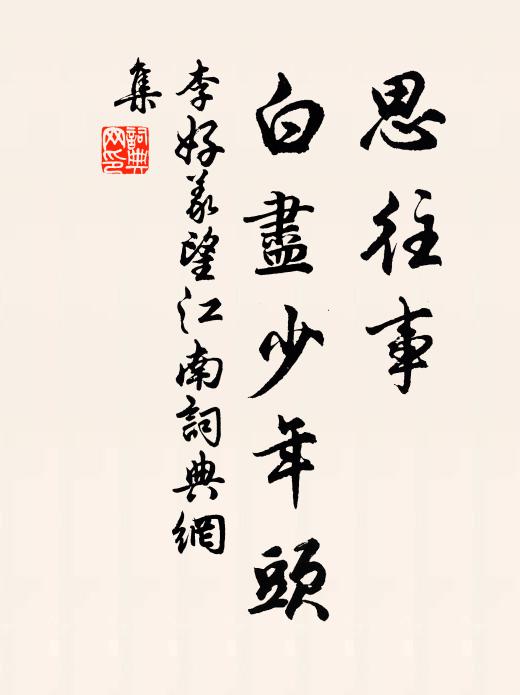 思往事
白盡少年頭
李好義望江南詞典網
集
詞典
网印